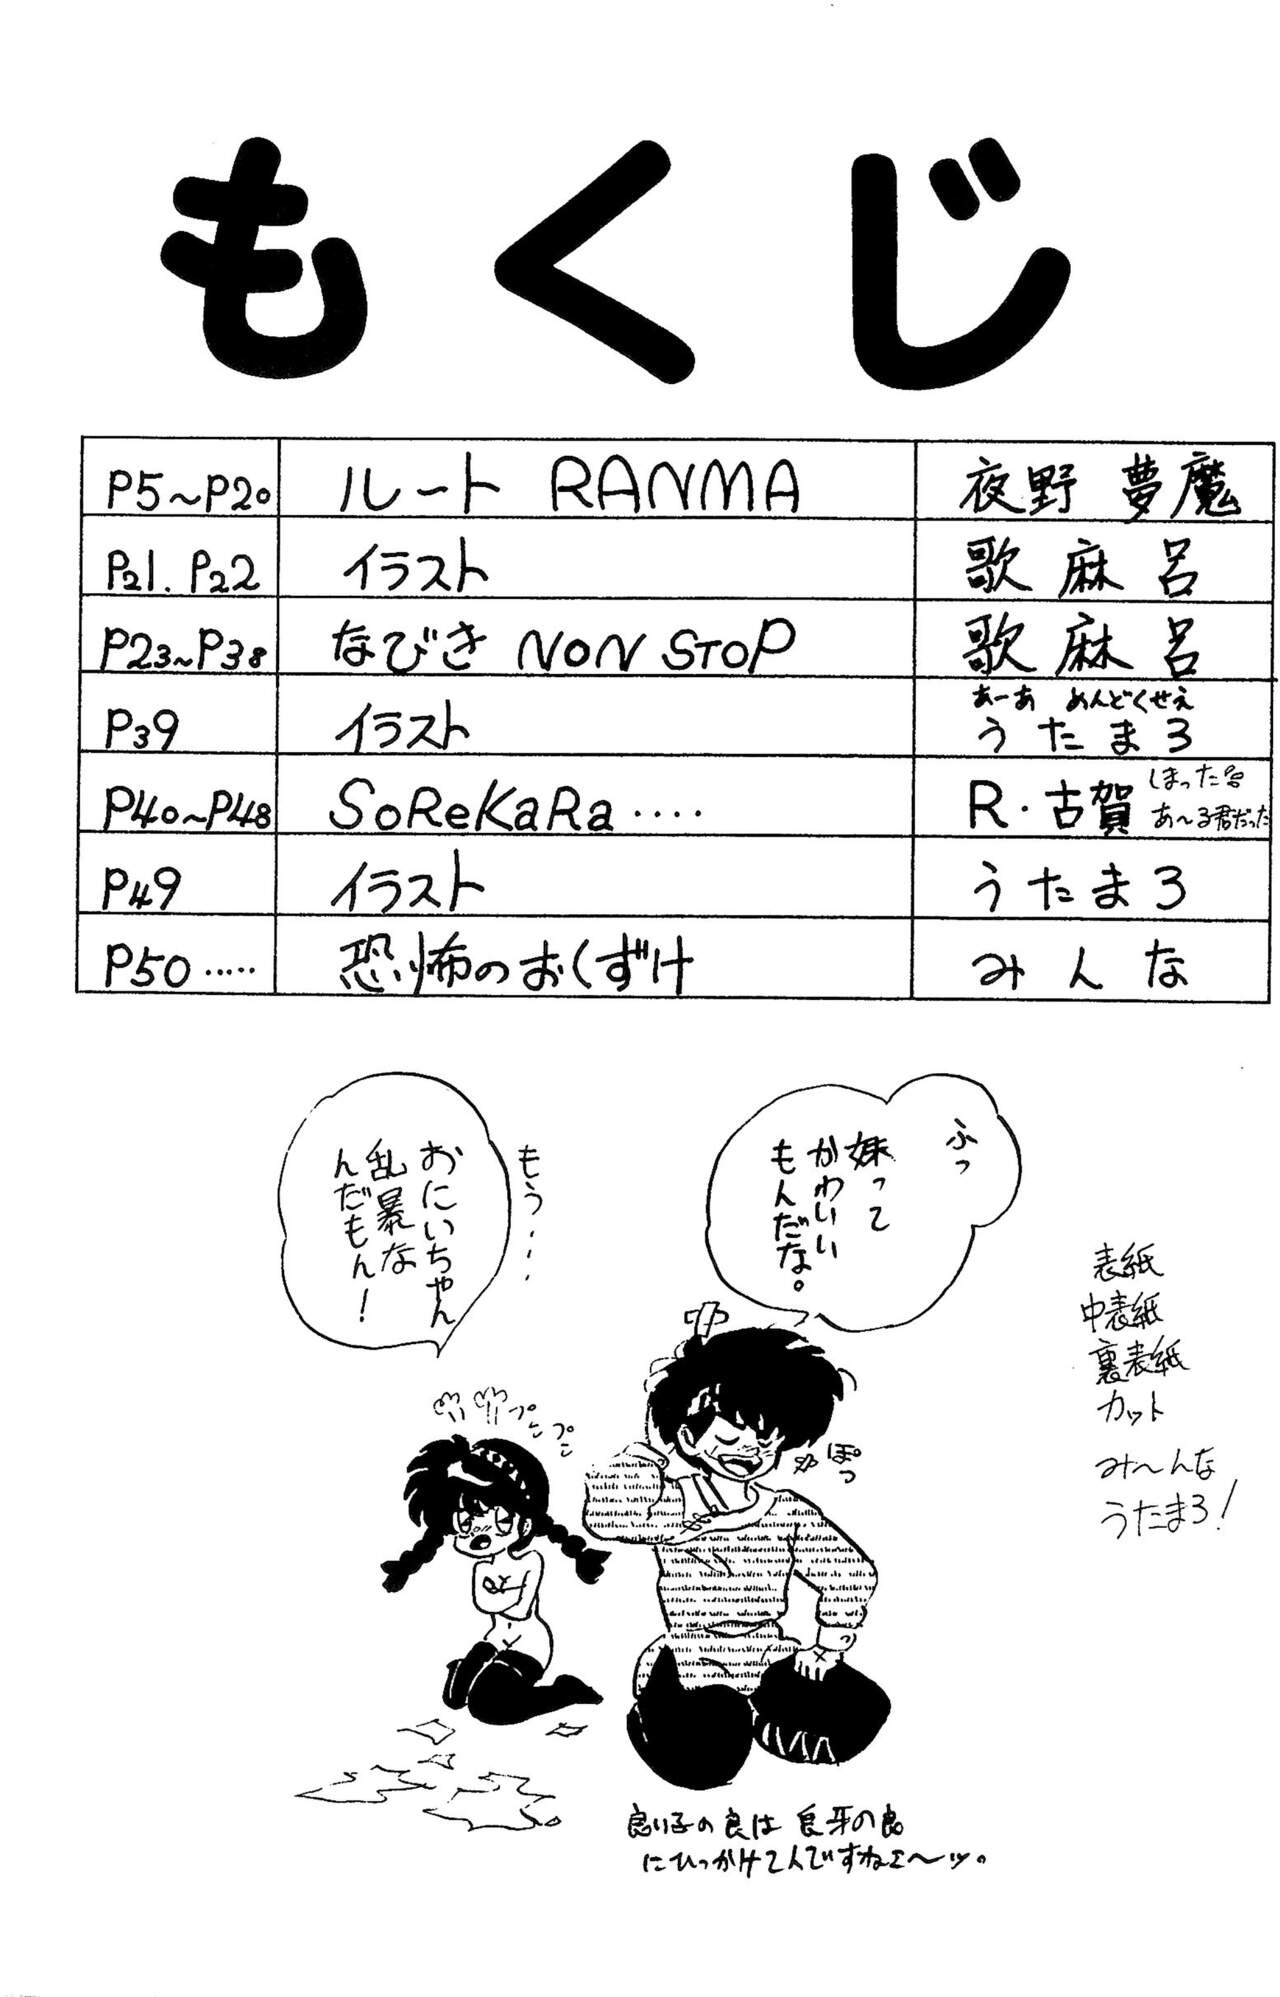 もくじ
P5～P20 ルート RANMA 夜野 夢魔
P21．P22 イラスト 歌麻呂
P23～P38 なびき NON STOP 歌麻呂
あーあ めんどくせえ
P39 イラスト うたまろ
P40～P48 SoReKaRa‥‥ R・古賀 しまった
あ～る君だった
P49 イラスト うたまろ
P50‥‥‥ 恐怖のおくずけ みんな
ふっ
妹って
かわいい
もんだな。
もう‥‥
おにいちゃん
乱暴な
んだもん！
プン
プン
ぽっ
表紙
中表紙
裏表紙
カット
み～んな
うたまろ！
良い子の良は 良牙の良
にひっかけてんですねェ～ッ。